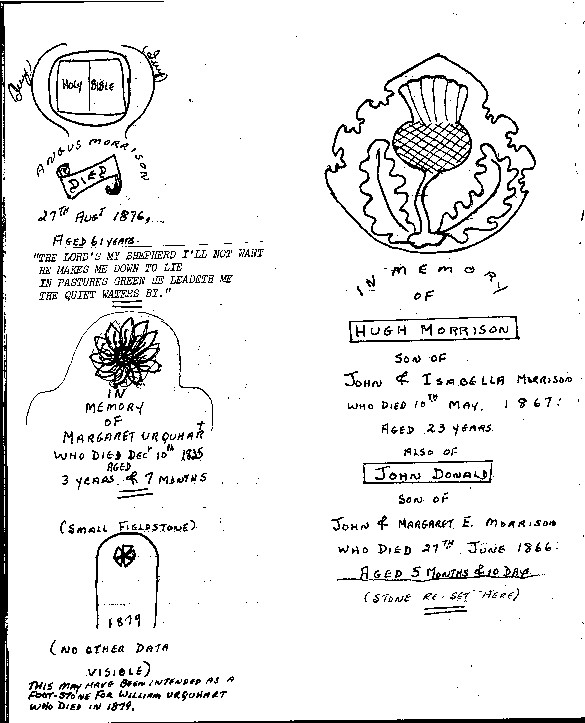 HOLY BIBLE
ANGUS MORRISON
DIED
27TH AUGT 1876,
AGED 61 YEARS.
"THE LORD'S MY SHEPHERD I'LL NOT WANT
HE MAKES ME DOWN TO LIE
IN PASTURES GREEN HE LEADETH ME
THE QUIET WATERS BY."
IN
MEMORY
OF
MARGARET URQUHART
WHO DIED DECR 10TH 1835
AGED
3 YEARS & 7 MONTHS
(SMALL FIELDSTONE)
1879
(NO OTHER DATA
VISIBLE)
THIS MAY HAVE BEEN INTENDED AS A
FOOT-STONE FOR WILLIAM URQUHART
WHO DIED IN 1879.
IN MEMORY
OF
HUGH MORRISON
SON OF
JOHN & ISABELLA MORRISON
WHO DIED 10TH MAY, 1867:
AGED 23 YEARS
ALSO OF
JOHN DONALD
SON OF
JOHN & MARGARET E. MORRISON
WHO DIED 27TH JUNE 1866:
AGED 5 MONTHS & 10 DAYS
(STONE RE-SET HERE)